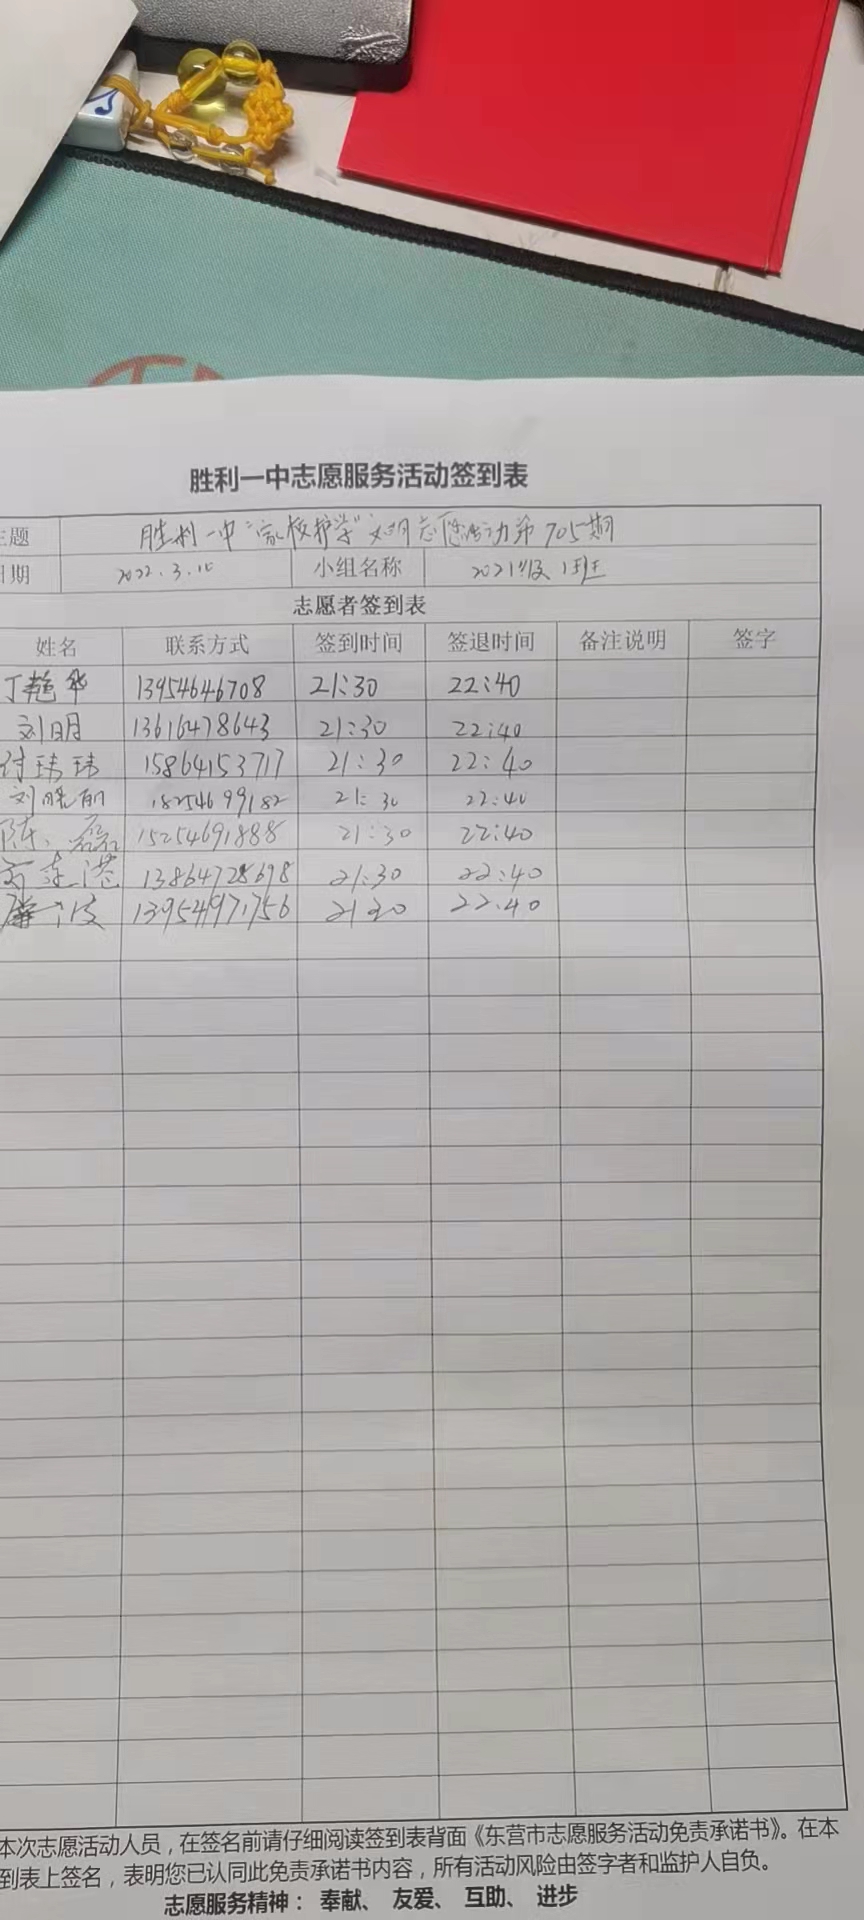 胜利一中志愿服务活动签到表
主题 胜利一中“家校护学”文明志愿活动第705期
日期 2022.3.10 小组名称 2021级1班
志愿者签到表
姓名 联系方式 签到时间 签退时间 备注说明 签字
丁艳华 13954646708 21:30 22:40
刘明 13616478643 21:30 22:40
付玮玮 15864153717 21:30 22:40
刘晓丽 18254699182 21:30 22:40
陈磊 15254691888 21:30 22:40
东港 13864728698 21:30 22:40
波 13954971756 21:30 22:40
本次志愿活动人员，在签名前请仔细阅读签到表背面《东营市志愿服务活动免责承诺书》。在本
到表上签名，表明您已认同此免责承诺书内容，所有活动风险由签字者和监护人自负。
志愿服务精神：奉献、友爱、互助、进步